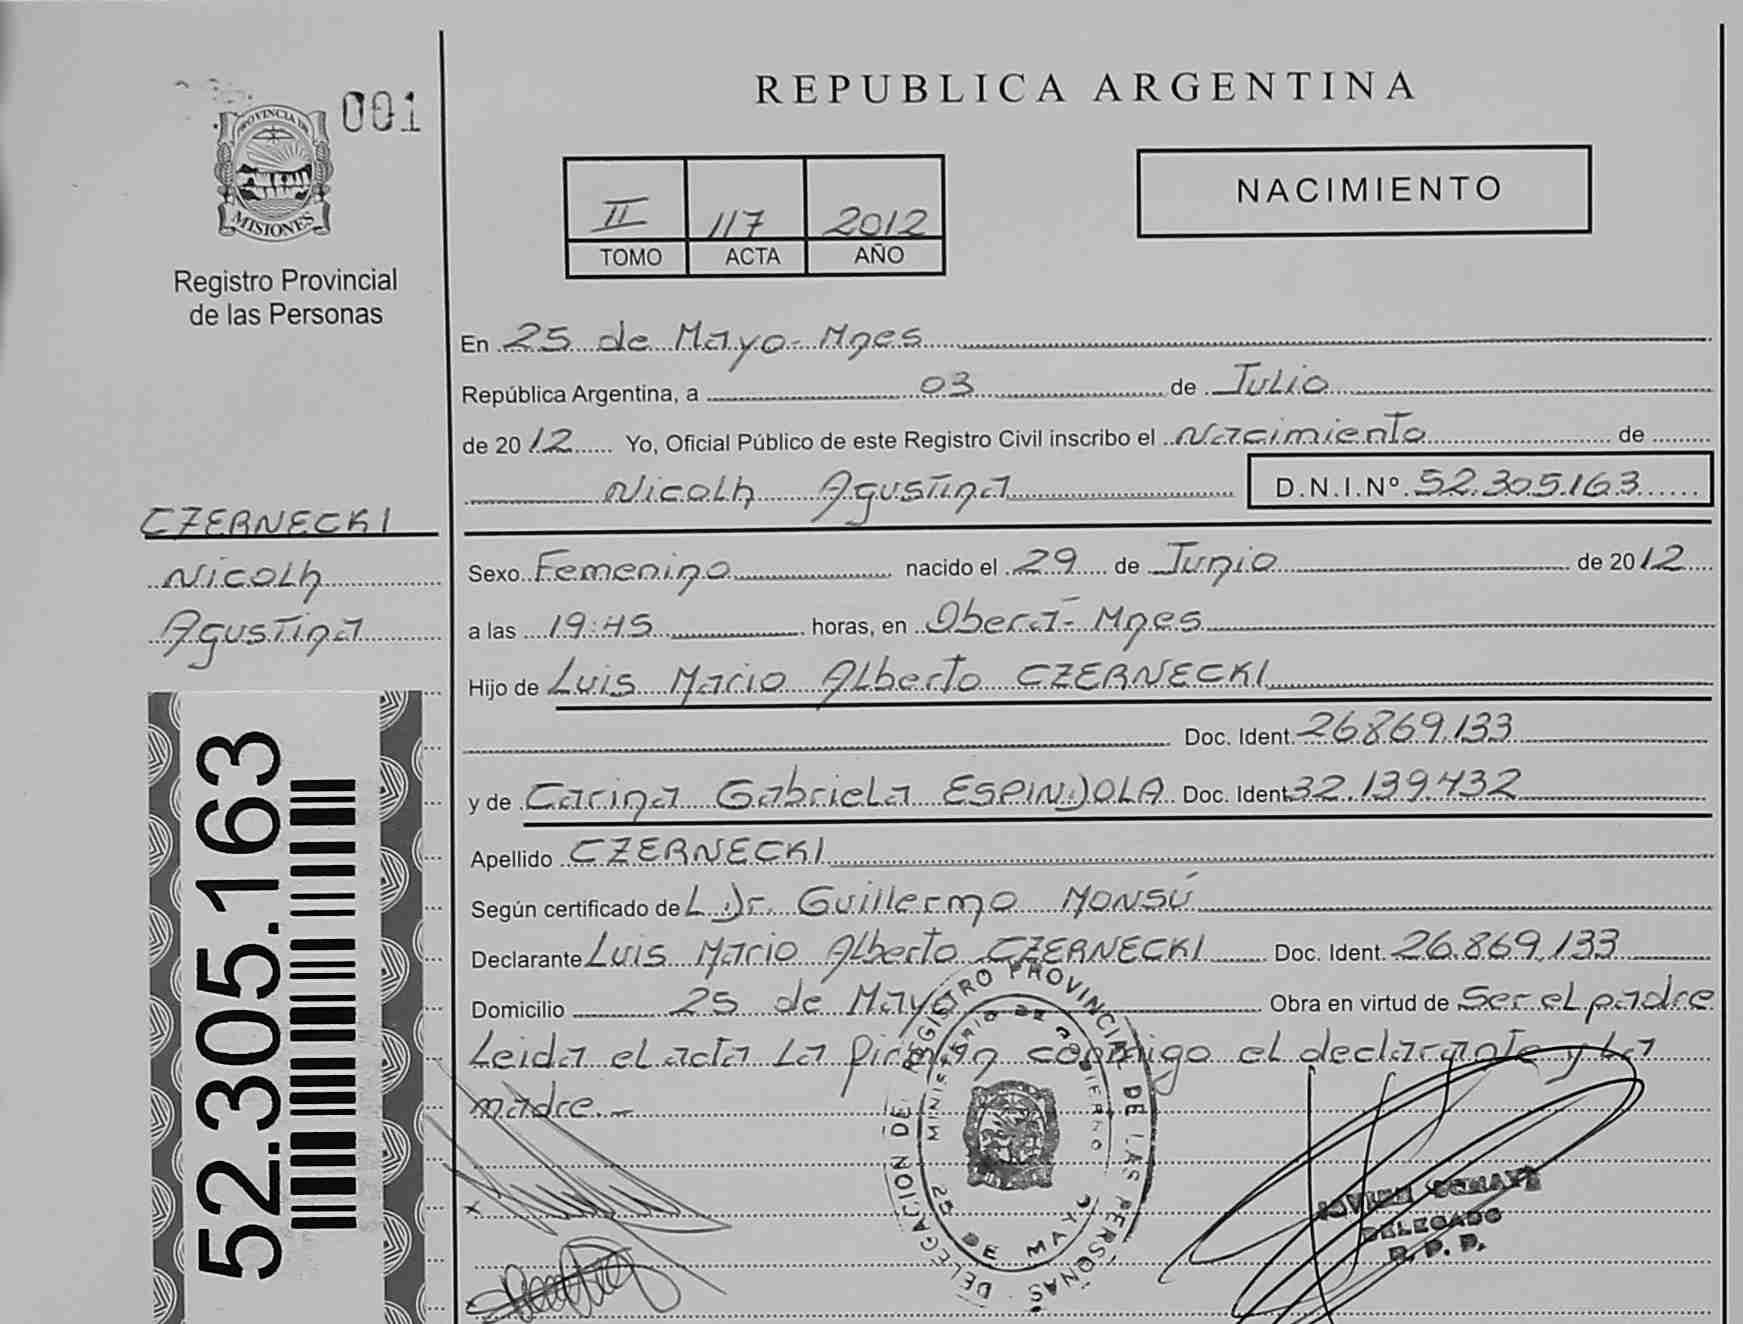 REPUBLICA ARGENTINA
001
PROVINCIA DE
MISIONES
Registro Provincial
de las Personas
II 117 2012
TOMO ACTA AÑO
NACIMIENTO
En 25 de Mayo - Mnes
República Argentina, a 03 de Julio
de 2012 Yo, Oficial Público de este Registro Civil inscribo el Nacimiento de
Nicolh Agustina D.N.I.Nº 52.305.163
CZERNECKI
Nicolh
Agustina
Sexo Femenino nacido el 29 de Junio de 2012
a las 19:45 horas, en Oberá - Mnes
Hijo de Luis Mario Alberto CZERNECKI
Doc. Ident. 26869.133
y de Carina Gabriela ESPINDOLA Doc. Ident 32.139432
Apellido CZERNECKI
Según certificado del Dr. Guillermo MONSÚ
Declarante Luis Mario Alberto CZERNECKI Doc. Ident. 26.869.133
Domicilio 25 de Mayo Obra en virtud de Ser el padre
Leida el acta La firman conmigo el declarante y La
madre.-
52.305.163
DELEGACION DEL REGISTRO PROVINCIAL DE LAS PERSONAS
MINISTERIO DE GOBIERNO
25 DE MAYO
DELEGADO
R. P. P.